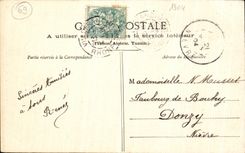 69
1904
CARTE POSTALE
A utiliser seulement dans le service intérieur
(France, Algérie, Tunisie)
Partie réservée à la Correspondance
Adresse du destinataire
Sincères amitiés
à tous
René
Mademoiselle N. Mousset
Faubourg de Bouhy
Donzy
Nièvre